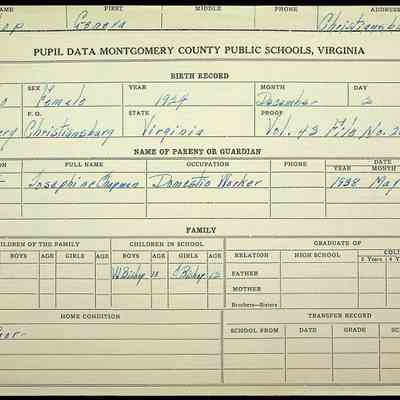 AME FIRST MIDDLE PHONE ADDRESS
op Geneva Christiansbu
PUPIL DATA MONTGOMERY COUNTY PUBLIC SCHOOLS, VIRGINIA
BIRTH RECORD
SEX YEAR MONTH DAY
Female 1924 December 2
P. O. STATE PROOF
erg Christiansburg Virginia Vol. 43 File No. 2
NAME OF PARENT OR GUARDIAN
ON FULL NAME OCCUPATION PHONE DATE
YEAR MONTH
Josephine Chapman Domestic Worker 1938 May
FAMILY
HILDREN OF THE FAMILY CHILDREN IN SCHOOL GRADUATE OF
BOYS AGE GIRLS AGE BOYS AGE GIRLS AGE RELATION HIGH SCHOOL COLL
2 Years 4 Y
W Bishop 10 C Bishop 12 FATHER
MOTHER
Brothers—Sisters
HOME CONDITION TRANSFER RECORD
SCHOOL FROM DATE GRADE SC